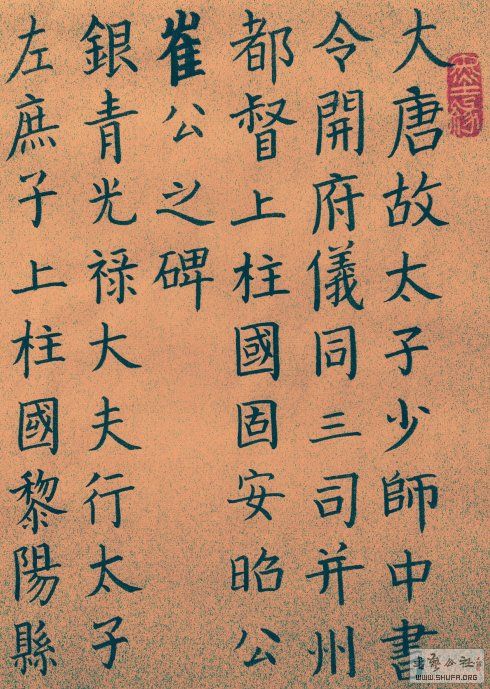 大唐故太子少師中書
令開府儀同三司并州
都督上柱國固安昭公
崔公之碑
銀青光禄大夫行太子
左庶子上柱國黎陽縣
書艺公社
WWW.SHUFA.ORG